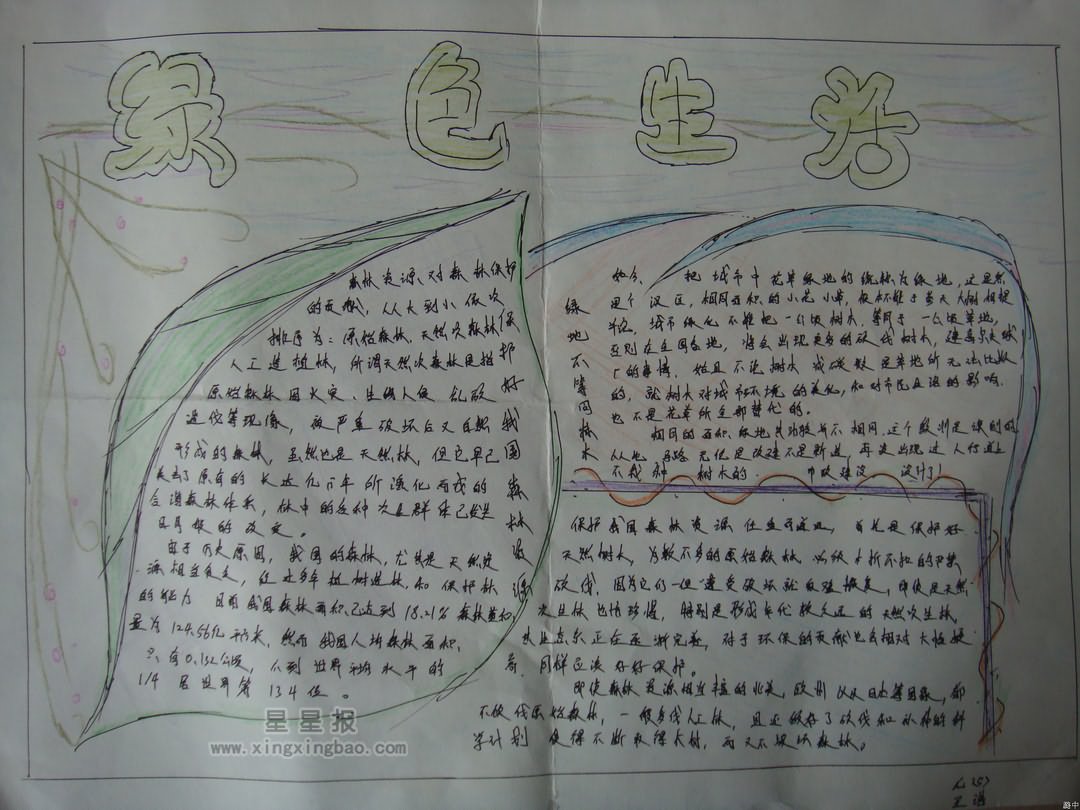 绿色生活
保护好我国森林资源
森林资源对森林保护
的贡献，从大到小依次
排序为：原始森林、天然次森林
人工造植林，所谓天然次森林是指
原始森林因火灾、生物入侵、乱砍
滥伐等现像，被严重破坏后又自然
形成的森林，虽然也是天然林，但它早已
失去了原有的长达几百年所演化而成的
林中的各种次生群体已发生
日月般的改变。
由于历史原因，我国的森林，尤其是天然资
源相当贫乏，经过多年植树造林，和保护林
的能力 目前我国森林面积已达到18.21% 森林蓄积
量为124.56亿 然而我国人均森林面积，
只有0.132公顷，不到世界平均水平的
1/4 居世界第134位。
绿地不等同林木
如今， 把城市中花草绿地的统称为绿地，这是
误区，相同面积的小花小草，
城市绿化不能把一公顷树木，等同于一公顷草地，
否则在全国各地，将会出现更多的砍伐树木，建
的事情。姑且不说树木 是草地所无法比拟
的，就树木对城市环境的美化，和对市民生活的影响，
也不是花草所全部替代的。
相同的面积、绿地其功效并不相同
从此，马路无论是改建不是新造，再变出现过人行道上
不栽种 树木的 市政建设 设计了！
保护我国森林资源任重而道远，首先是保护好
天然树木，为数不多的原始森林 以及不折不扣的严禁
砍伐，因为它们一但遭受破坏就很难恢复，即使是天然
次生林也怕珍惜，特别是形成年代较久远的天然次生林，
其生态系正在逐渐完善，对于环保的贡献也会相对大幅提
高，同样应该好好保护。
即使森林资源相当 的北美，欧州以及日本等国家，都
不砍伐原始森林，一般多伐人工林，且还做好了砍伐和补种的科
学计划 使得不断取得木材，而又不毁坏森林。
星星报
www.xingxingbao.com